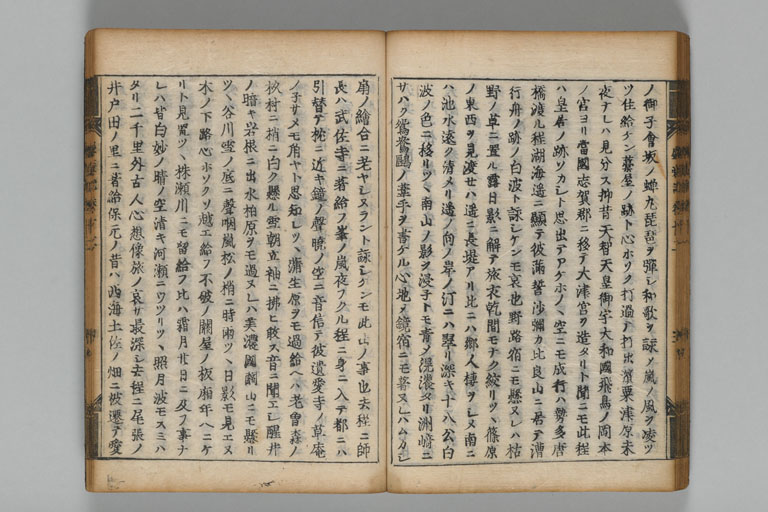 ノ御子會坂ノ蝉丸琵琶ヲ彈シ和歌ヲ詠メ嵐ノ風ヲ凌ツ
ツ住給ケン藁屋ノ跡ト心ホソク打過テ打出濱粟津原未
夜ナレハ見分ス抑昔天智天皇御宇大和國飛鳥ノ岡本
ノ宮ヨリ當國志賀郡ニ移テ大津宮ヲ造タリト聞ニモ此程
ハ皇居ノ跡ソカシト思出テアケホノヽ空ニモ成行ハ勢多唐
橋渡ル程湖海遥ニ顯テ彼滿誓沙彌カ比良山ニ居テ漕
行舟ノ跡ノ白波ト詠シケンモ哀也野路宿ニモ懸ヌレハ枯
野ノ草ニ置ル露日影ニ解テ旅衣乾間モナク絞リツヽ篠原
ノ東西ヲ見渡セハ遥ニ長堤アリ北ニハ鄉人棲ヲシメ南ニ
ハ池水遠ク清メリ遥ノ向ノ岸ノ汀ニハ翠リ深キ十八公白
波ノ色ニ移リツヽ南山ノ影ヲ浸子トモ青ノ滉瀁タリ洲﨑ニ
サハク鴛鴦鷗ノ葦手ヲ書ケル心地メ鏡宿ニモ着ヌレハムカシ
扇ノ繪合ニ老ヤシヌラント詠シケンモ此山ノ事也去程ニ師
長ハ武佐寺ニ着給フ峯ノ嵐夜フクル程ニ身ニ入テ都ニハ
引替テ枕ニ近キ鐘ノ聲曉ノ空ニ音信テ彼遺愛寺ノ草庵
ノ子サメモ角ヤト思知レツヽ蒲生原ヲモ過給ヘハ老曽森ノ
杉村ニ梢ニ白ク懸ル雪朝立袖ニ拂ヒ敢ス音ニ聞エシ醒井
ノ暗キ岩根ニ出水柏原ヲモ過ヌレハ美濃國關山ニモ懸リ
ツヽ谷川雪ノ底ニ聲咽嵐松ノ梢ニ時雨ツヽ日影モ見エヌ
木ノ下路心ホソクソ越エ給フ不破ノ關屋ノ板廂年ヘニケ
リト見置ツヽ株瀬川ニモ留給フ比ハ霜月廿日ニ及フ事ナ
レハ皆白妙ノ晴ノ空清キ河瀬ニウツリツヽ照月波モスミハ
タリ二千里外古人心想像旅ノ哀サ最深シ去程ニ尾張ノ
井戸田ノ里ニ着給保元ノ昔ハ西海土佐ノ畑ニ被遷テ愛